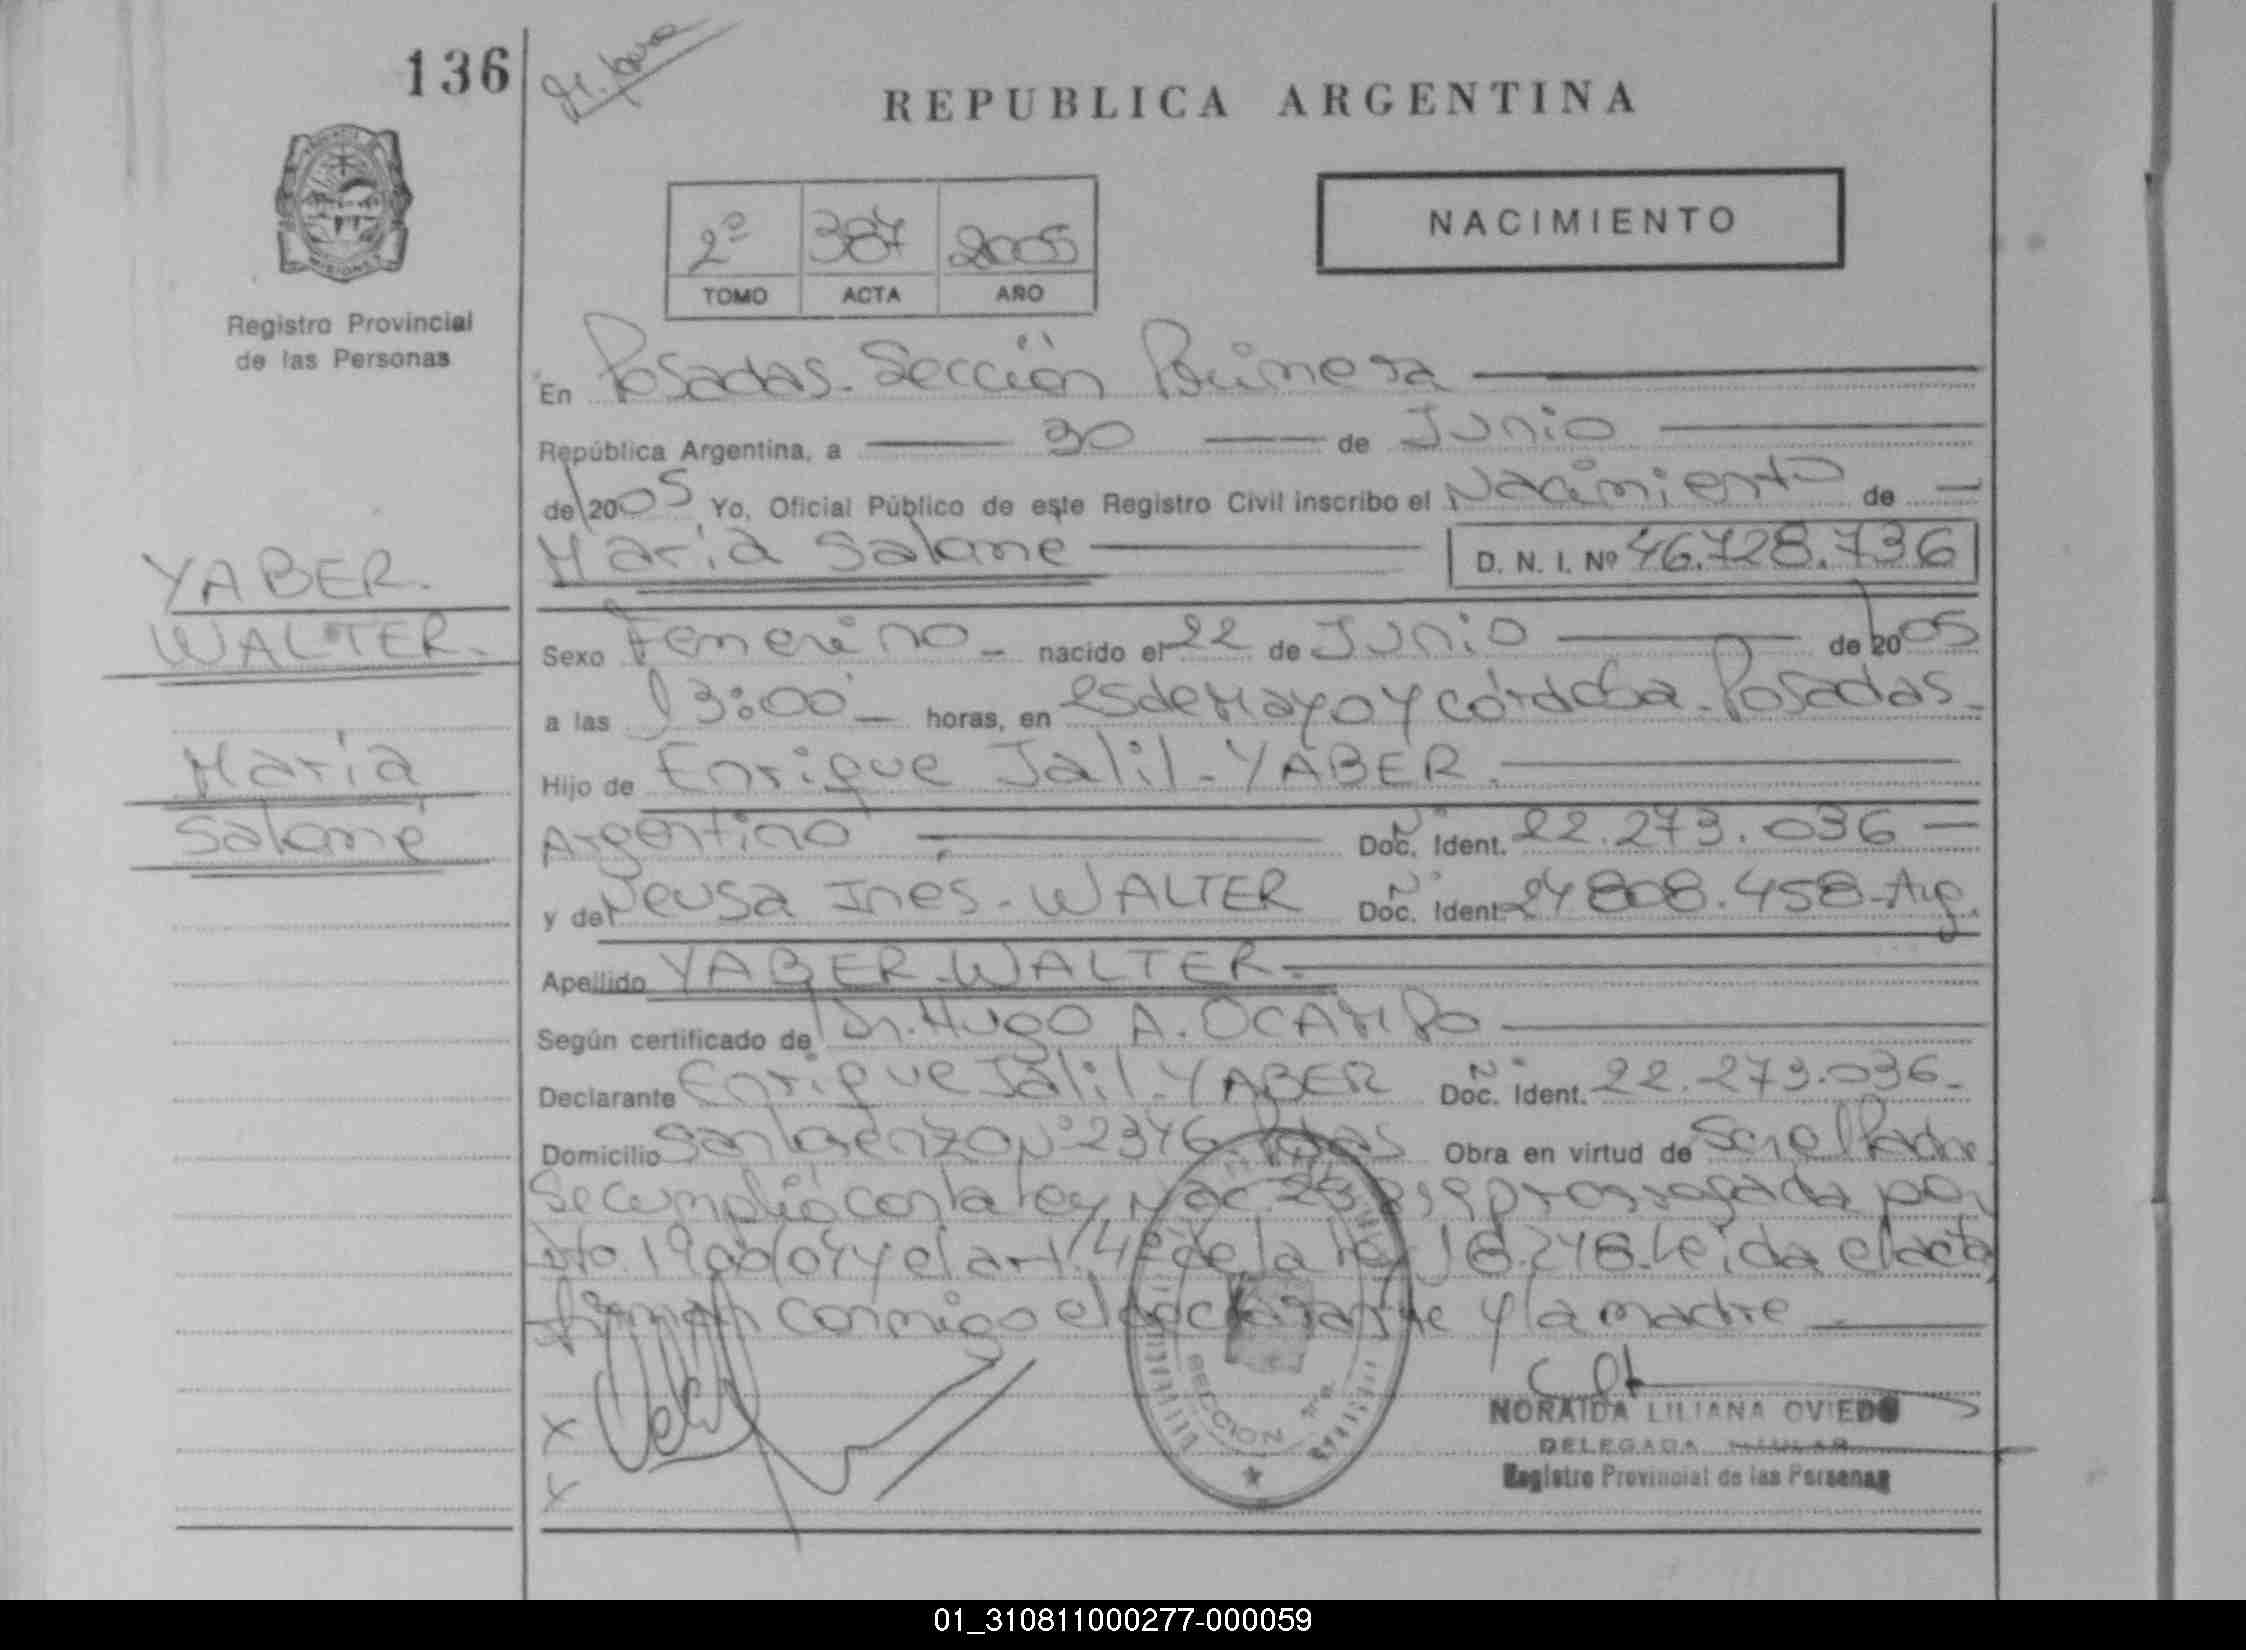 136
REPUBLICA ARGENTINA
2º 387 2005
TOMO ACTA AÑO
NACIMIENTO
Registro Provincial
de las Personas
En Posadas. Sección Primera
República Argentina, a 30 de Junio
de 2005 Yo, Oficial Público de este Registro Civil inscribo el Nacimiento de
María Salomé
D. N. I. Nº 46.728.736
YABER.
WALTER.
María
Salomé
Sexo Femenino nacido el 22 de Junio de 2005
a las 13:00 horas, en 25 de Mayo y Córdoba. Posadas
Hijo de Enrique Jalil - YABER.
Argentino Nº Doc. Ident. 22.273.036
y de Neusa Inés - WALTER Nº Doc. Ident. 24808.458 - Arg.
Apellido YABER WALTER.
Según certificado de Dr. Hugo A. OCAMPO
Declarante Enrique Jalil - YABER Nº Doc. Ident. 22.273.036
Domicilio San Lorenzo Nº 2346 Posadas Obra en virtud de Ser el Padre
Se cumplió con la ley Nac. prorrogada por
y el art. 4º de la ley 18.248. Leída el acta
firman conmigo el declarante y la madre
SECCION
NORAIDA LILIANA OVIEDO
DELEGADA TITULAR
Registro Provincial de las Personas
01_310811000277-000059